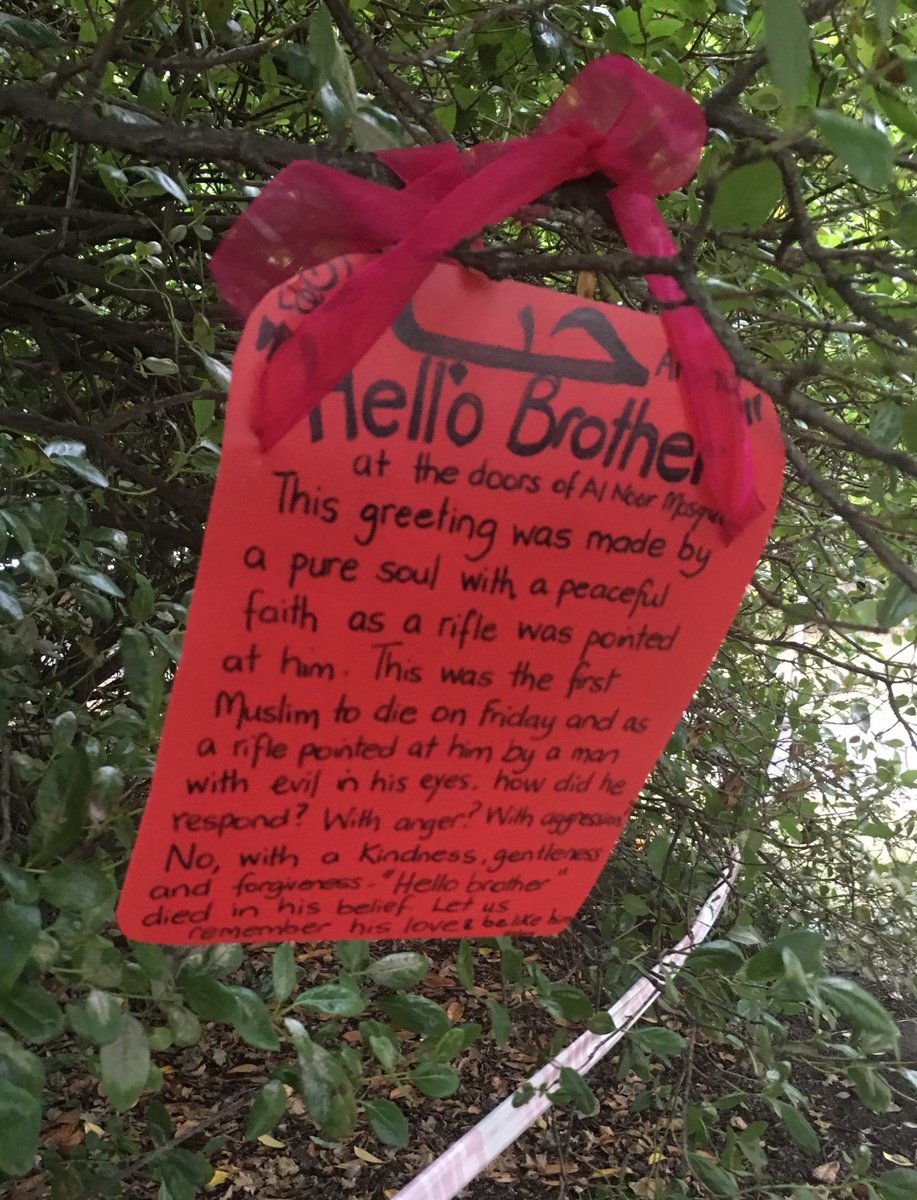 Hello Brother
at the doors of Al Noor Mosque
This greeting was made by
a pure soul with a peaceful
faith as a rifle was pointed
at him. This was the first
Muslim to die on Friday and as
a rifle pointed at him by a man
with evil in his eyes. how did he
respond? With anger? With aggression?
No, with a kindness, gentleness
and forgiveness. "Hello brother"
died in his belief. Let us
remember his love & be like him